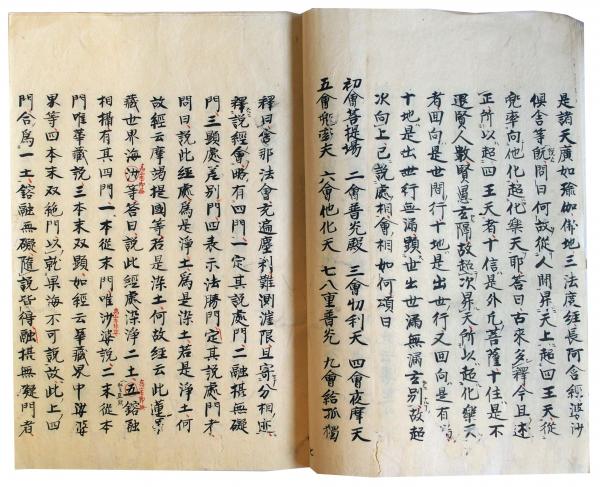 是諸天廣如瑜伽儀地三法度經長阿含經婆沙
俱舍等說問曰何故從人間昇天上超四王天從
兜率向他化超化樂天耶答曰古來多釋今且述
正所以超四王天者十信是外凡菩薩十住是不
退賢人數賢愚玄隔故超次昇天所以超化樂天
者回向是世間行十地是出世行又回向是有漏
十地是出世行無漏顯世出世漏無漏玄別故超
次向上已說處相會相如何頌曰
初會菩提場 二會普光殿 三會忉利天 四會夜摩天
五會兜率天 六會他化天 七八重普光 九會給孤獨
釋曰舍那法會充遍塵刹難測涯限且寄分相
釋說經會略有四門一定其說處門二融攝無礙
門三顯處差別門四表示法勝門定其說處門者
問曰說此經處為是淨土為是染土若是淨土何
故經云摩竭提國等若是染土何故經云此蓮華
藏世界海等答曰說此經處染淨二土鎔融
相攝有其四門一本從末門唯娑婆說二末從本
門唯華藏說三本末双顯如經云華藏界中娑婆
界等四本末双絶門以就果海不可說故此上四
門合為一土鎔融無礙隨說皆得融攝無礙門者